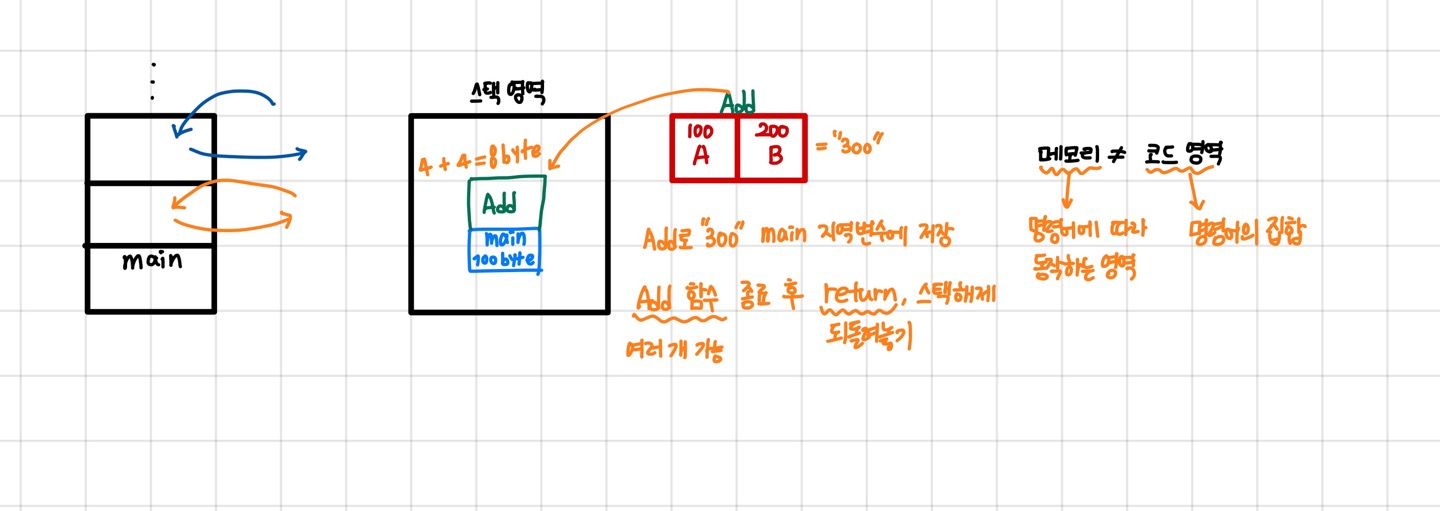 main
스택 영역
4 + 4 = 8byte
Add
main
100byte
Add
100 200
A B
= "300"
Add로 "300" main 지역변수에 저장
Add 함수 종료 후 return, 스택해제
여러 개 가능
되돌려놓기
메모리 ≠ 코드 영역
명령어에 따라
동작하는 영역
명령어의 집합